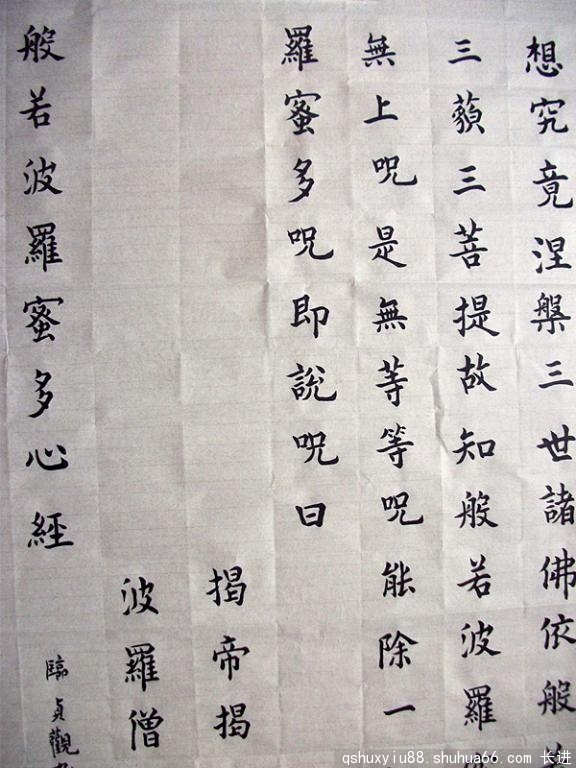 想究竟涅槃三世諸佛依般
三藐三菩提故知般若波羅
無上呪是無等等呪能除一
羅蜜多呪即說呪曰
揭帝揭
波羅僧
般若波羅蜜多心經
臨貞觀
qshuxyiu88.shuhua66.com 长进